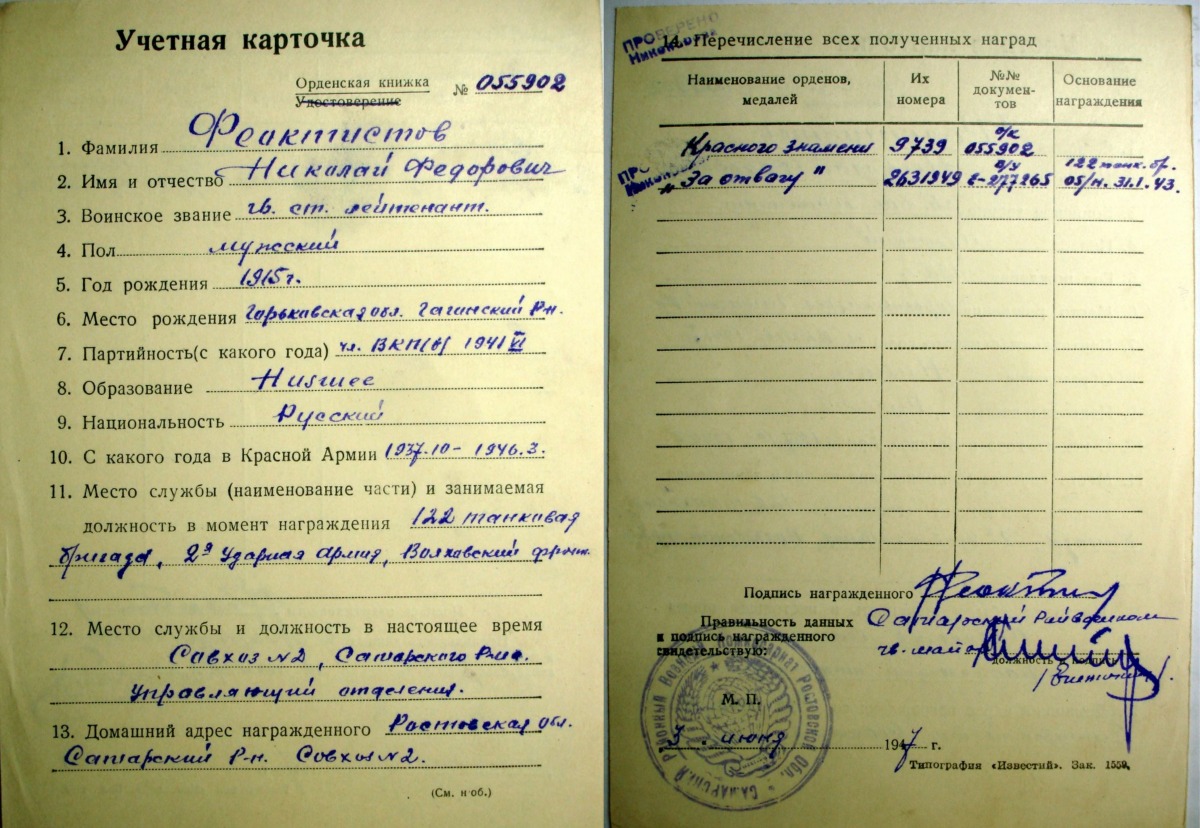 Учетная карточка
Орденская книжка
Удостоверение
№ 055902
1. Фамилия Феактистов
2. Имя и отчество Николай Федорович
3. Воинское звание гв. ст. лейтенант.
4. Пол мужский
5. Год рождения 1915 г.
6. Место рождения Горьковская обл. Гагинский Р-н.
7. Партийность(с какого года) чл. ВКП(б) 1941 VI
8. Образование Низшее
9. Национальность Русский
10. С какого года в Красной Армии 1937.10 - 1946.3.
11. Место службы (наименование части) и занимаемая
должность в момент награждения 122 танковая
бригада, 2я Ударная армия, Волховский фронт.
12. Место службы и должность в настоящее время
Совхоз N2, Самарского Р-на.
Управляющий отделения.
13. Домашний адрес награжденного Ростовская обл.
Самарский Р-н. Совхоз N2.
(См. н об.)
ПРОВЕРЕНО
14. Перечисление всех полученных наград
Наименование орденов, медалей
Их номера
№№ документов
Основание награждения
Красного Знамени 9739 о/к 055902
„За отвагу" 2631949 в/у Е-277265 122 танк. бр. 05/н. 31.1.43.
Подпись награжденного
Правильность данных и подпись награжденного свидетельствую:
Самарский Райвоенком
гв. майор
должность и подпись
М. П.
3. июня 1947 г.
Типография «Известий». Зак. 1559.